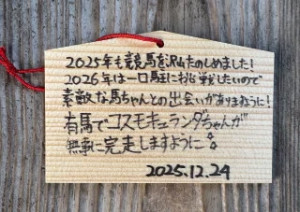 2025年も競馬を沢山たのしめました!
2026年は一口馬主に挑戦したいので
素敵な馬ちゃんとの出会いがありますように!
有馬でコスモキュランダちゃんが
無事に完走しますように
2025.12.24